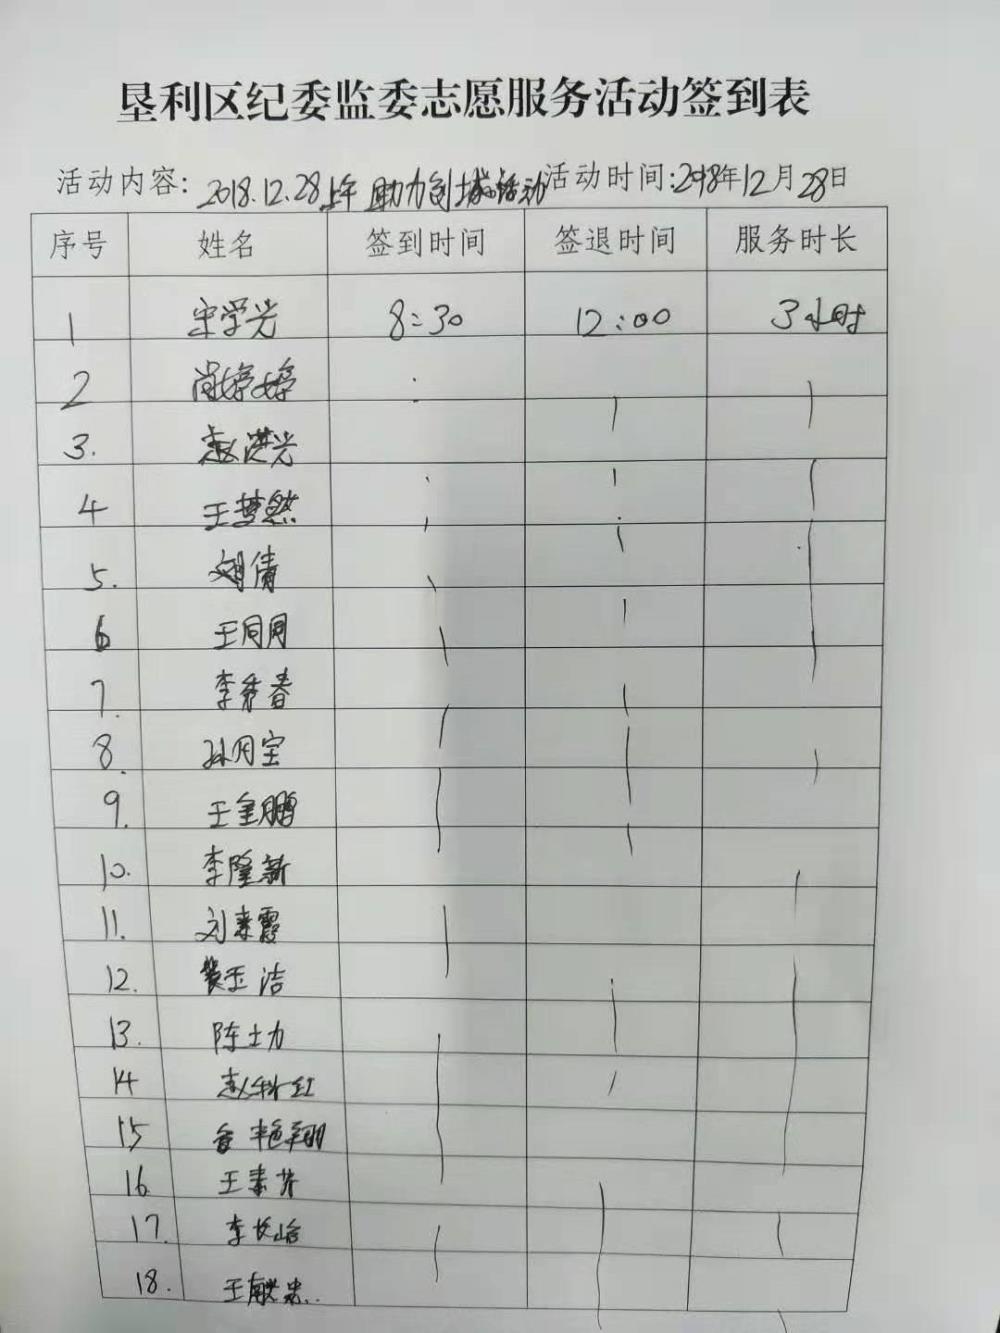 垦利区纪委监委志愿服务活动签到表
活动内容: 2018.12.28上午 助力创城活动 活动时间:2018年12月28日
序号 姓名 签到时间 签退时间 服务时长
1 宋学光 8:30 12:00 3小时
2 尚婷婷
3. 赵洪光
4 王梦然
5. 刘倩
6 王同同
7. 李秀春
8. 孙月宝
9. 王金鹏
10. 李隆新
11. 刘来霞
12. 裴玉洁
13. 陈士力
14 赵红
15 艳翔
16. 王素芳
17. 李长
18. 王忠